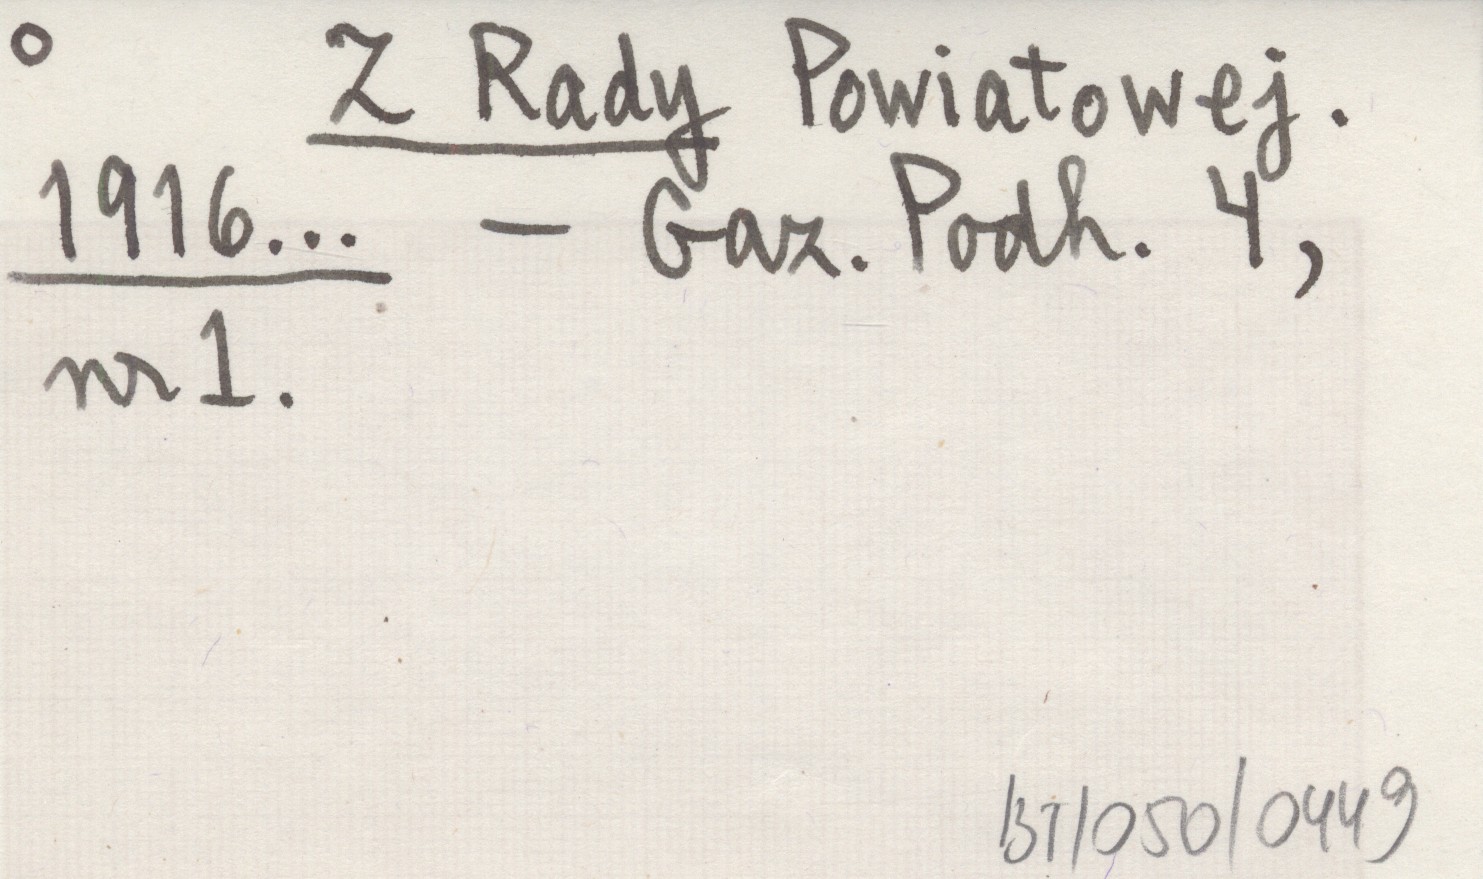 ° Z Rady Powiatowej.
1916... – Gaz. Podh. 4,
nr 1.
BT/050/0449